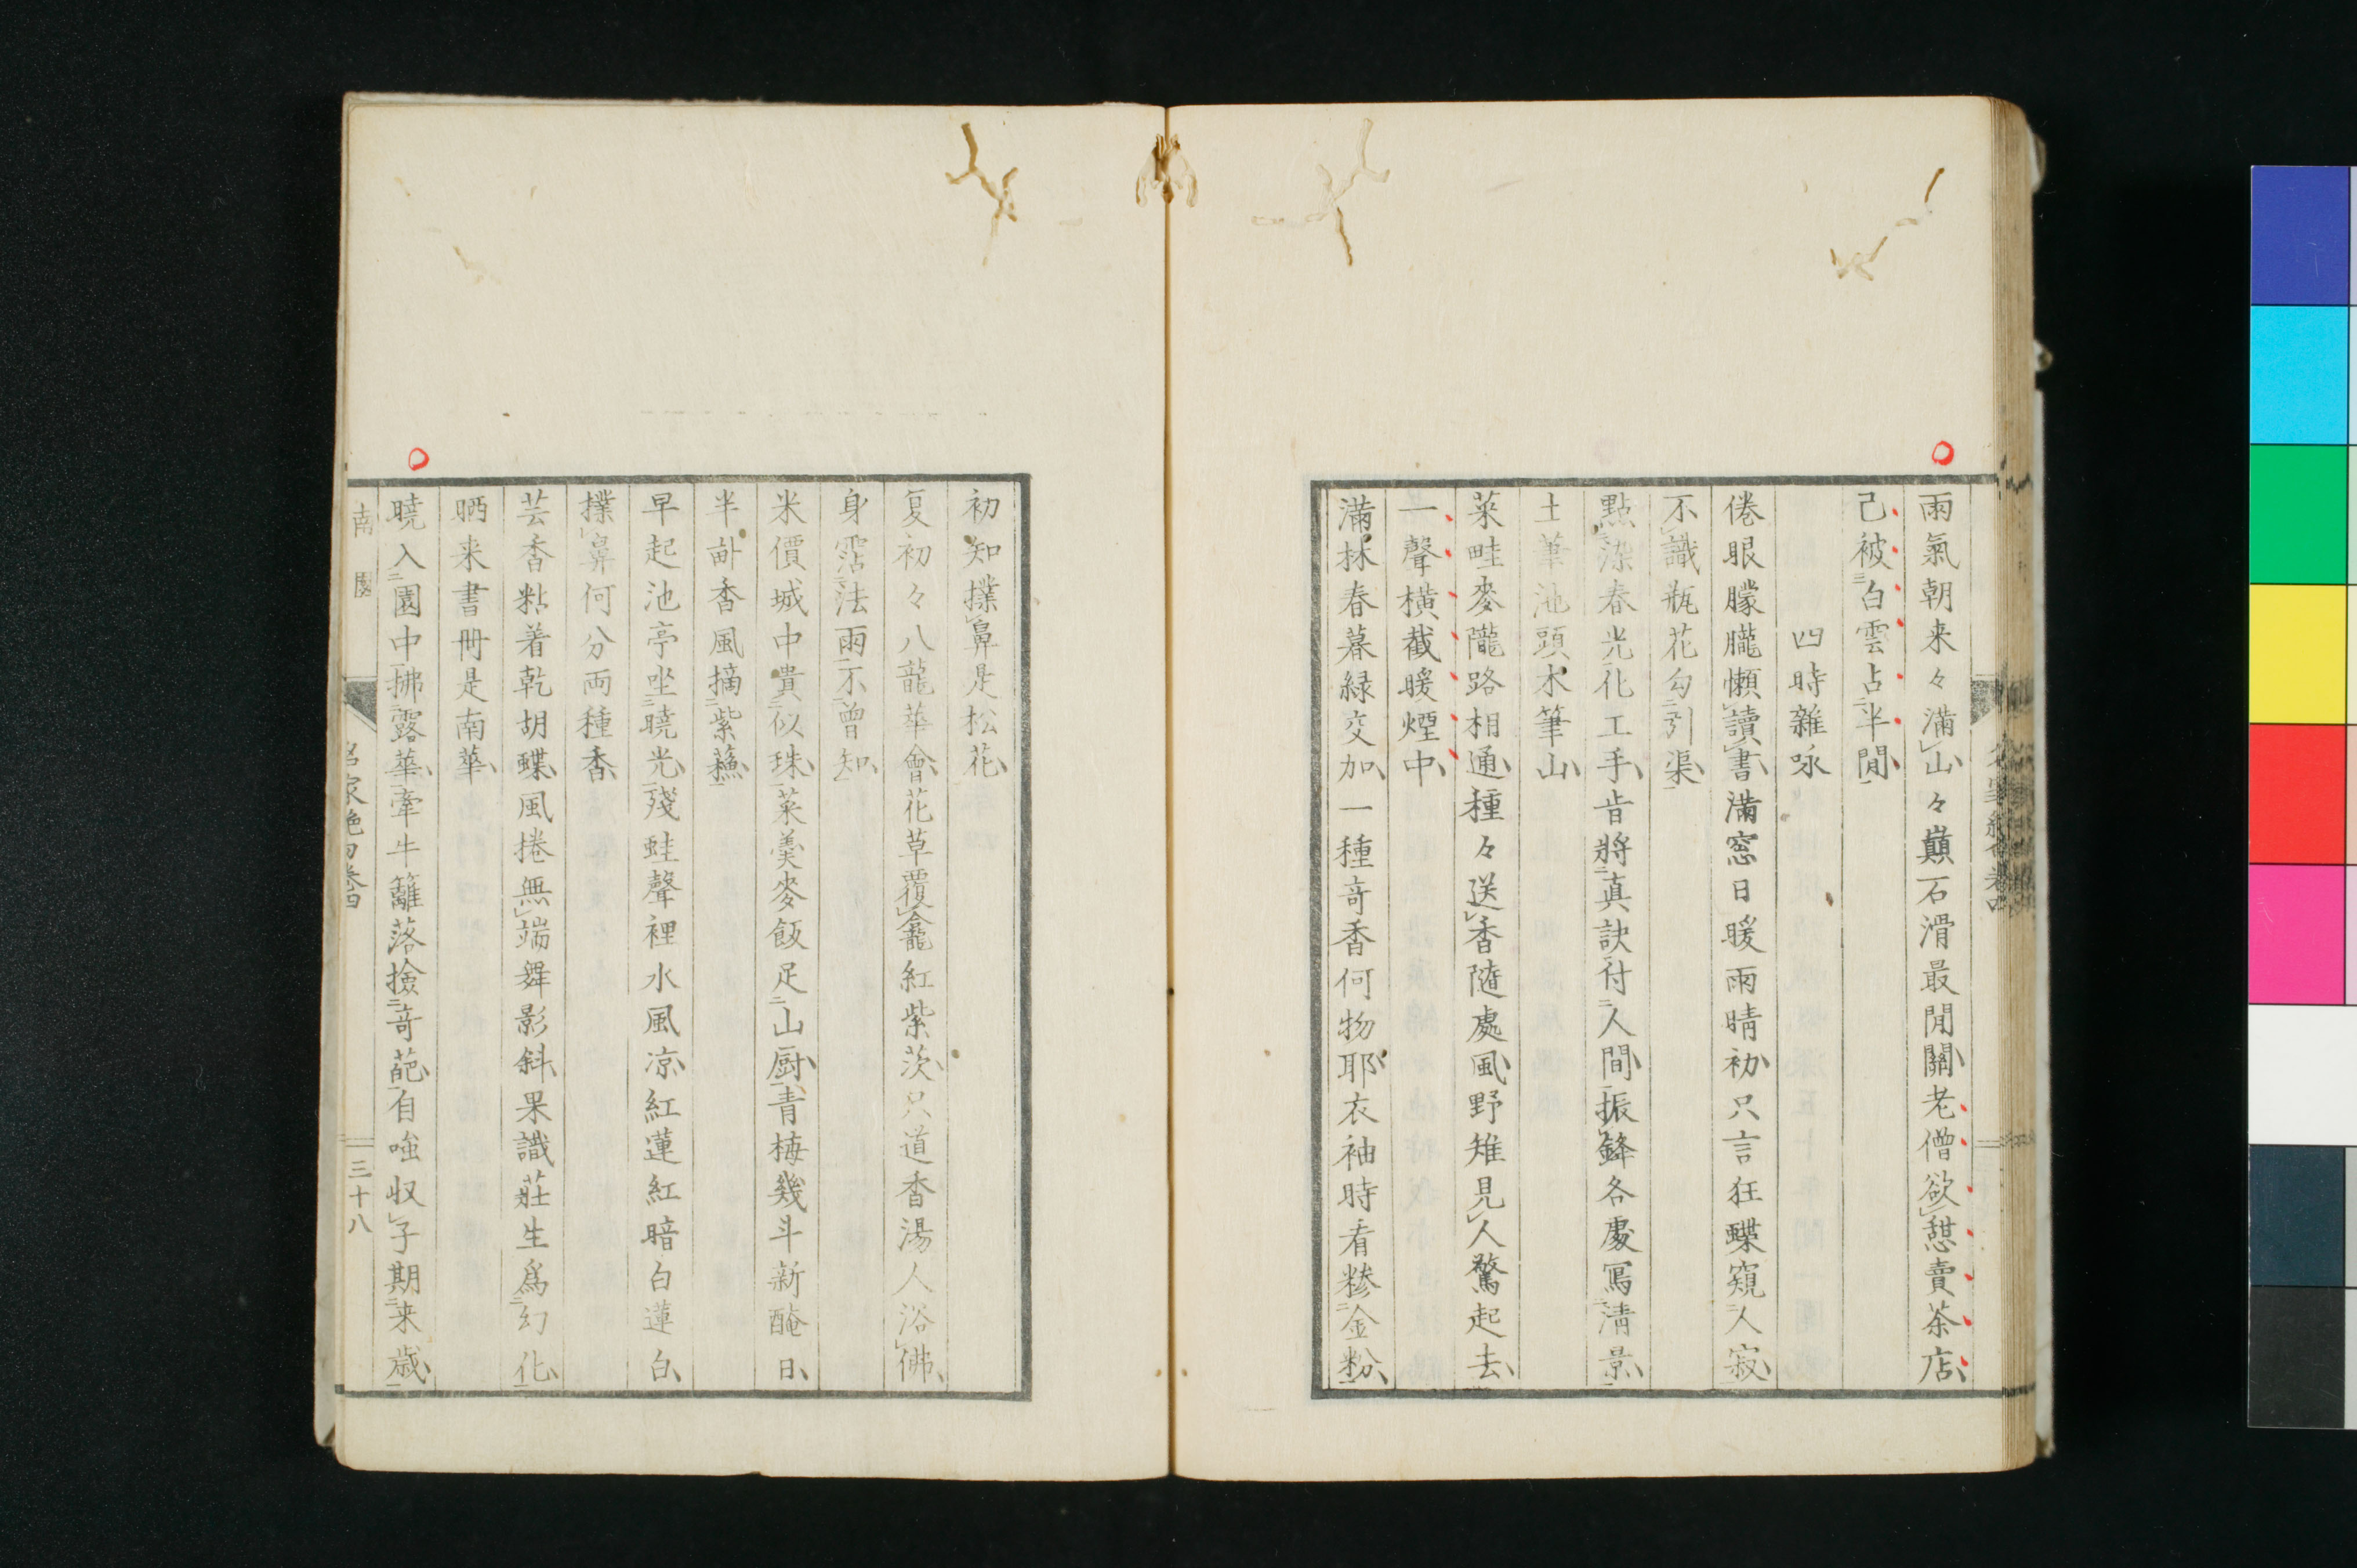 雨氣朝来々滿山々巔石滑最閒關老僧欲憇賣茶店
己被白雲占半閒
四時雜咏
倦眼朦朧懶讀書滿窓日暖雨晴初只言狂蝶窺人寂
不識瓶花勾引渠
點染春光化工手肯將真訣付人間振鋒各處冩清景
土筆池頭木筆山
菜畦麥隴路相通種々送香随處風野雉見人驚起去
一聲橫截暖煙中
滿林春暮緑交加一種竒香何物耶衣袖時看糝金粉
初知撲鼻是松花
夏初々八龍華會花草覆龕紅紫茨只道香湯人浴佛
身霑法雨不曾知
米價城中貴似珠菜羹麥飯足山厨青梅幾斗新醃日
半畝香風摘紫蘓
早起池亭坐曉光殘蛙聲裡水風凉紅蓮紅暗白蓮白
撲鼻何分両種香
芸香粘着乾胡蝶風捲無端舞影斜果識莊生爲幻化
晒来書冊是南華
曉入園中拂露華牽牛籬落撿竒葩自嗤収子期来歳
南園
名家絶句卷四
三十八